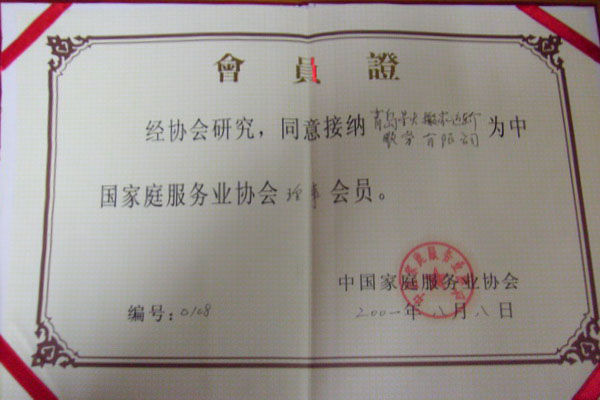 會員證
经协会研究，同意接纳青岛 搬家运输
服务有限公司为中
国家庭服务业协会理事会员。
中国家庭服务业协会
编号：0108
2001年八月八日